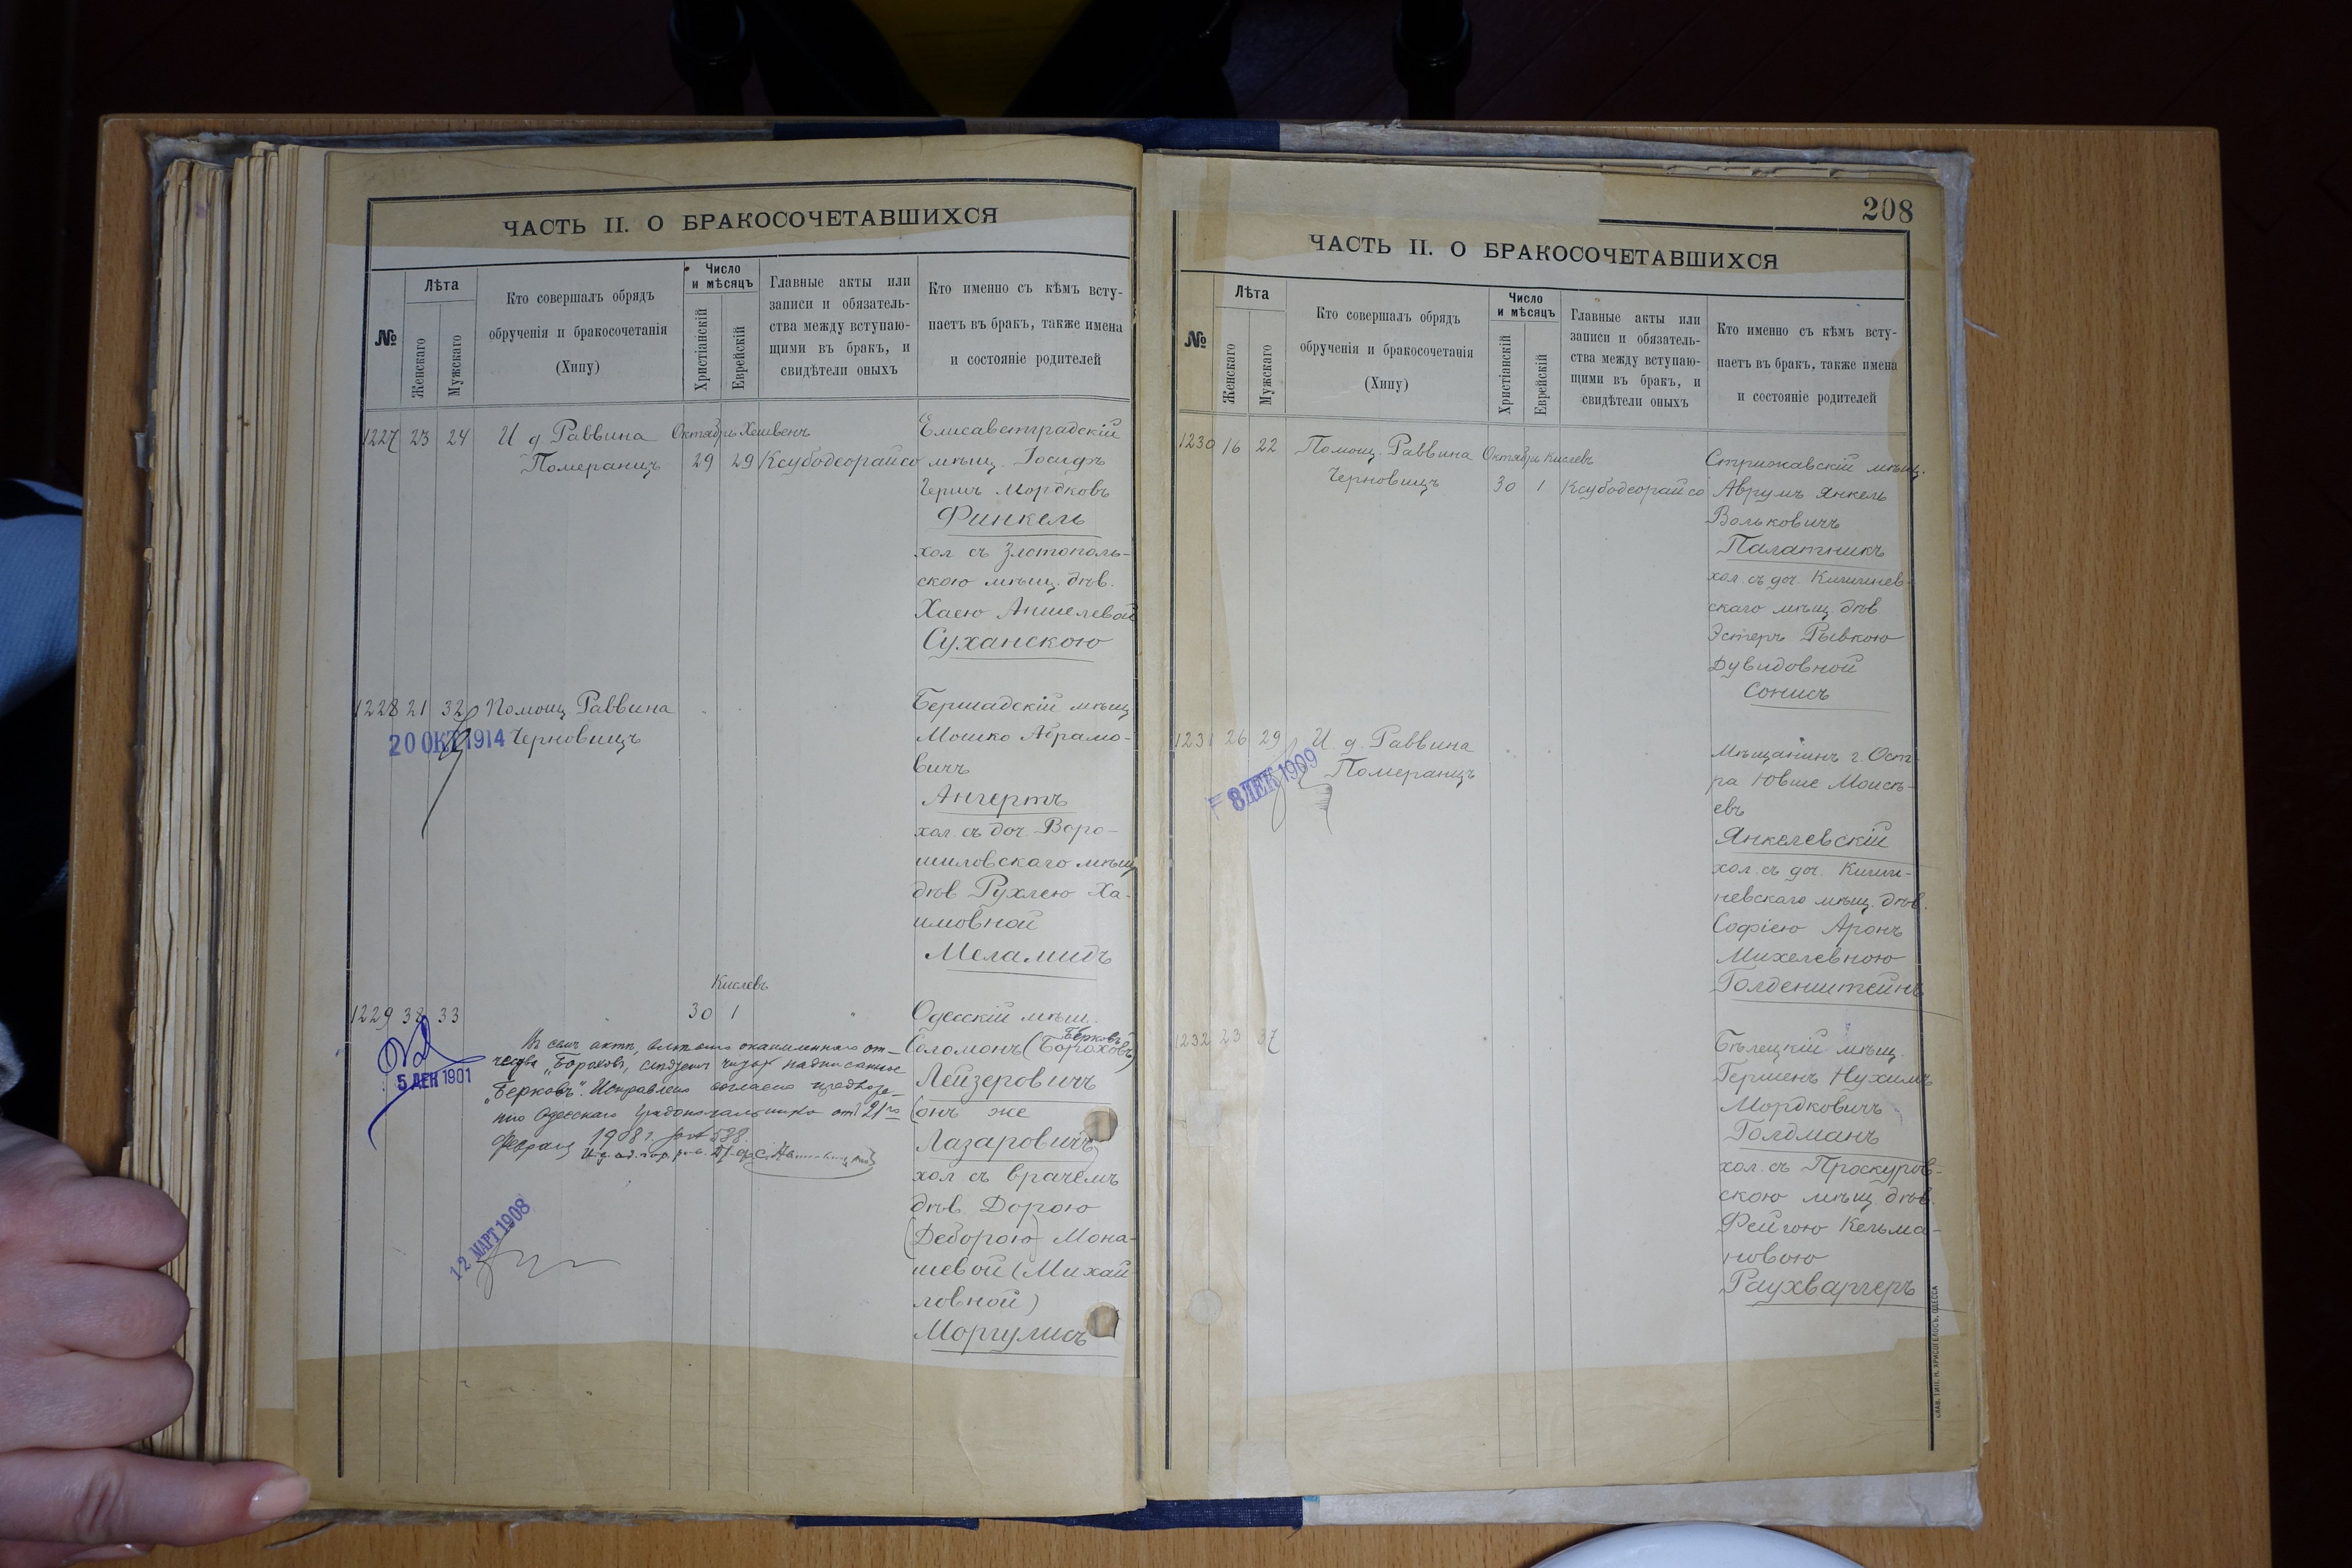 ЧАСТЬ II. О БРАКОСОЧЕТАВШИХСЯ
№
Лѣта
Женскаго
Мужскаго
Кто совершалъ обрядъ
обрученія и бракосочетанія
(Хипу)
Число
и мѣсяцъ
Христіанскій
Еврейскій
Главные акты или
записи и обязатель-
ства между вступаю-
щими въ бракъ, и
свидѣтели оныхъ
Кто именно съ кѣмъ всту-
паетъ въ бракъ, также имена
и состояніе родителей
1227 23 24 И д. Раввина Октябрь Хешвенъ
Померанцъ 29 29 Ксубодеорайсо
Елисаветградскій
мѣщ. Іосифъ
Гершъ Мордковъ
Финкель
хол съ Злотополь-
скою мѣщ. дѣв.
Хаею Аншелевой
Суханскою
1228 21 32 Помощ Раввина
20 ОКТ 1914 Черновицъ
Бершадскій мѣщ
Мошко Абрамо-
вичъ
Ангертъ
хол. съ доч. Воро-
шиловскаго мѣщ
дѣв Рухлею Ха-
имовной
Меламидъ
Кислевъ
1229 38 33 30 1
5 ДЕК 1901
Въ семъ актѣ, вмѣсто от-
чества „Бороховъ, слѣдуетъ читать надписанное
„Берковъ". Исправлено согласно предложе-
нію Одесскаго Градоначальника отъ 21го
Февраля 1908 г. за № 538.
12 МАРТ 1908
Одесскій мѣщ.
Берковъ
Соломонъ (Бороховъ)
Лейзеровичъ
(онъ же
Лазаровичъ)
хол съ врачемъ
дѣв. Дорою
(Деборою) Мона-
шевой (Михай
ловной)
Моргулисъ
208
ЧАСТЬ II. О БРАКОСОЧЕТАВШИХСЯ
№
Лѣта
Женскаго
Мужскаго
Кто совершалъ обрядъ
обрученія и бракосочетанія
(Хипу)
Число
и мѣсяцъ
Христіанскій
Еврейскій
Главные акты или
записи и обязатель-
ства между вступаю-
щими въ бракъ, и
свидѣтели оныхъ
Кто именно съ кѣмъ всту-
паетъ въ бракъ, также имена
и состояніе родителей
1230 16 22 Помощ. Раввина Октябрь Кислевъ
Черновицъ 30 1 Ксубодеорайсо
Стрижавскій мѣщ.
Аврумъ Янкель
Вольковичъ
Палатникъ
хол. съ доч. Кишинев-
скаго мѣщ. дѣв.
Эстеръ Рывкою
Дувидовной
Сонисъ
1231 26 29 И. д. Раввина
8 ДЕК 1909 Померанцъ
Мѣщанинъ г. Ост-
раЮвше Моисѣ-
евъ
Янкелевскій
хол. съ доч. Киши-
невскаго мѣщ. дѣв.
Софіею Аронъ
Михелевною
Голденштейнъ
1232 23 37
Бѣлецкій мѣщ.
Гершенъ Нухимъ
Мордковичъ
Голдманъ
хол. съ Проскуров-
скою мѣщ. дѣв.
Фейгою Кельма-
новою
Раухвергеръ
СЛАВ. ТИП. Н. ХРИСОГЕЛОСЪ, ОДЕССА